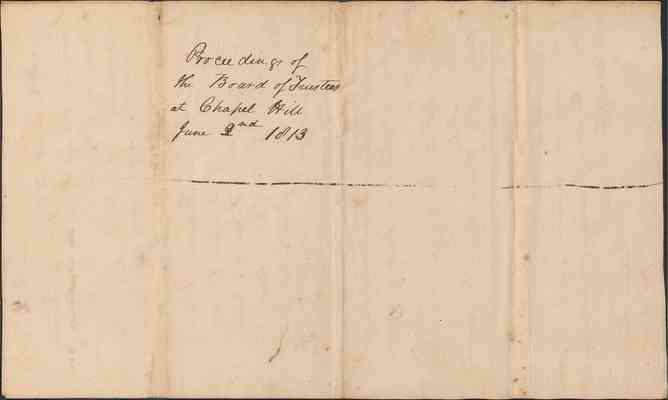 Proceedings of
the Board of Trustees
at Chapel Hill
June 2nd 1813